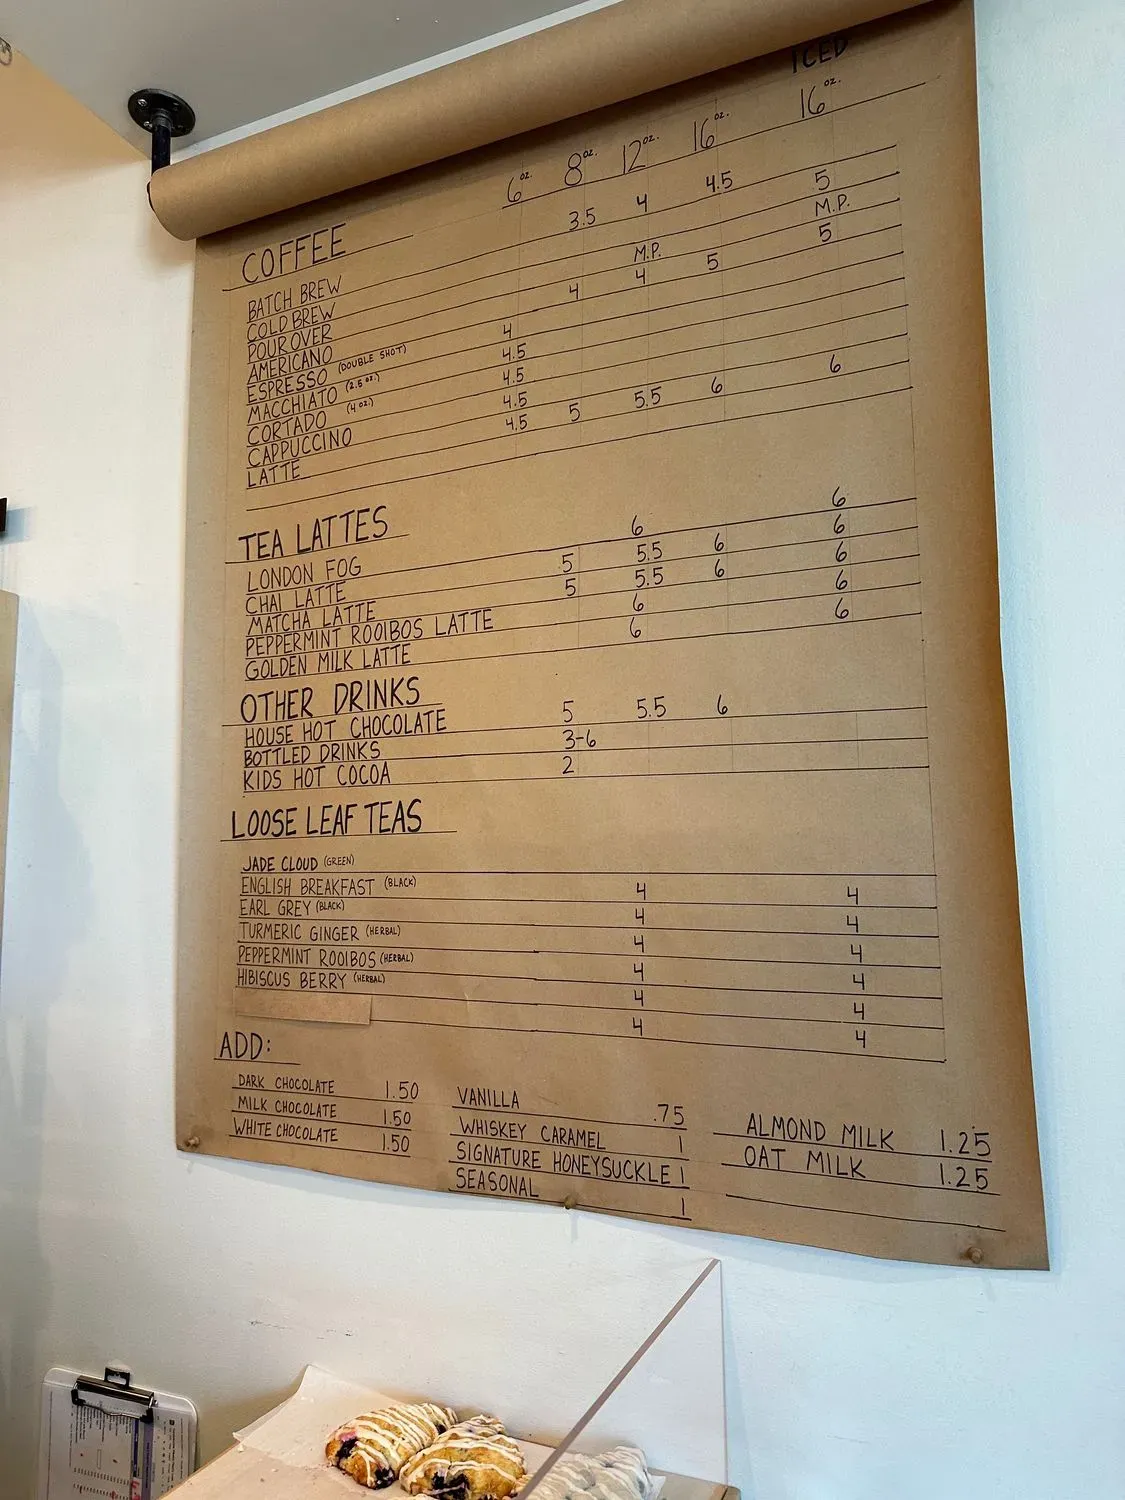 ICED
6 oz. 8 oz. 12 oz. 16 oz. 16 oz.
COFFEE
BATCH BREW 3.5 4 4.5
COLD BREW 5
POUR OVER M.P. M.P.
AMERICANO 4 4 5 5
ESPRESSO (DOUBLE SHOT) 4
MACCHIATO (2.5 oz.) 4.5
CORTADO (4 oz.) 4.5
CAPPUCCINO 4.5
LATTE 4.5 5 5.5 6 6
TEA LATTES
LONDON FOG 6 6
CHAI LATTE 5 5.5 6 6
MATCHA LATTE 5 5.5 6 6
PEPPERMINT ROOIBOS LATTE 6 6
GOLDEN MILK LATTE 6 6
OTHER DRINKS
HOUSE HOT CHOCOLATE 5 5.5 6
BOTTLED DRINKS 3-6
KIDS HOT COCOA 2
LOOSE LEAF TEAS
JADE CLOUD (GREEN) 4 4
ENGLISH BREAKFAST (BLACK) 4 4
EARL GREY (BLACK) 4 4
TURMERIC GINGER (HERBAL) 4 4
PEPPERMINT ROOIBOS (HERBAL) 4 4
HIBISCUS BERRY (HERBAL) 4 4
ADD:
DARK CHOCOLATE 1.50
MILK CHOCOLATE 1.50
WHITE CHOCOLATE 1.50
VANILLA .75
WHISKEY CARAMEL 1
SIGNATURE HONEYSUCKLE 1
SEASONAL 1
ALMOND MILK 1.25
OAT MILK 1.25